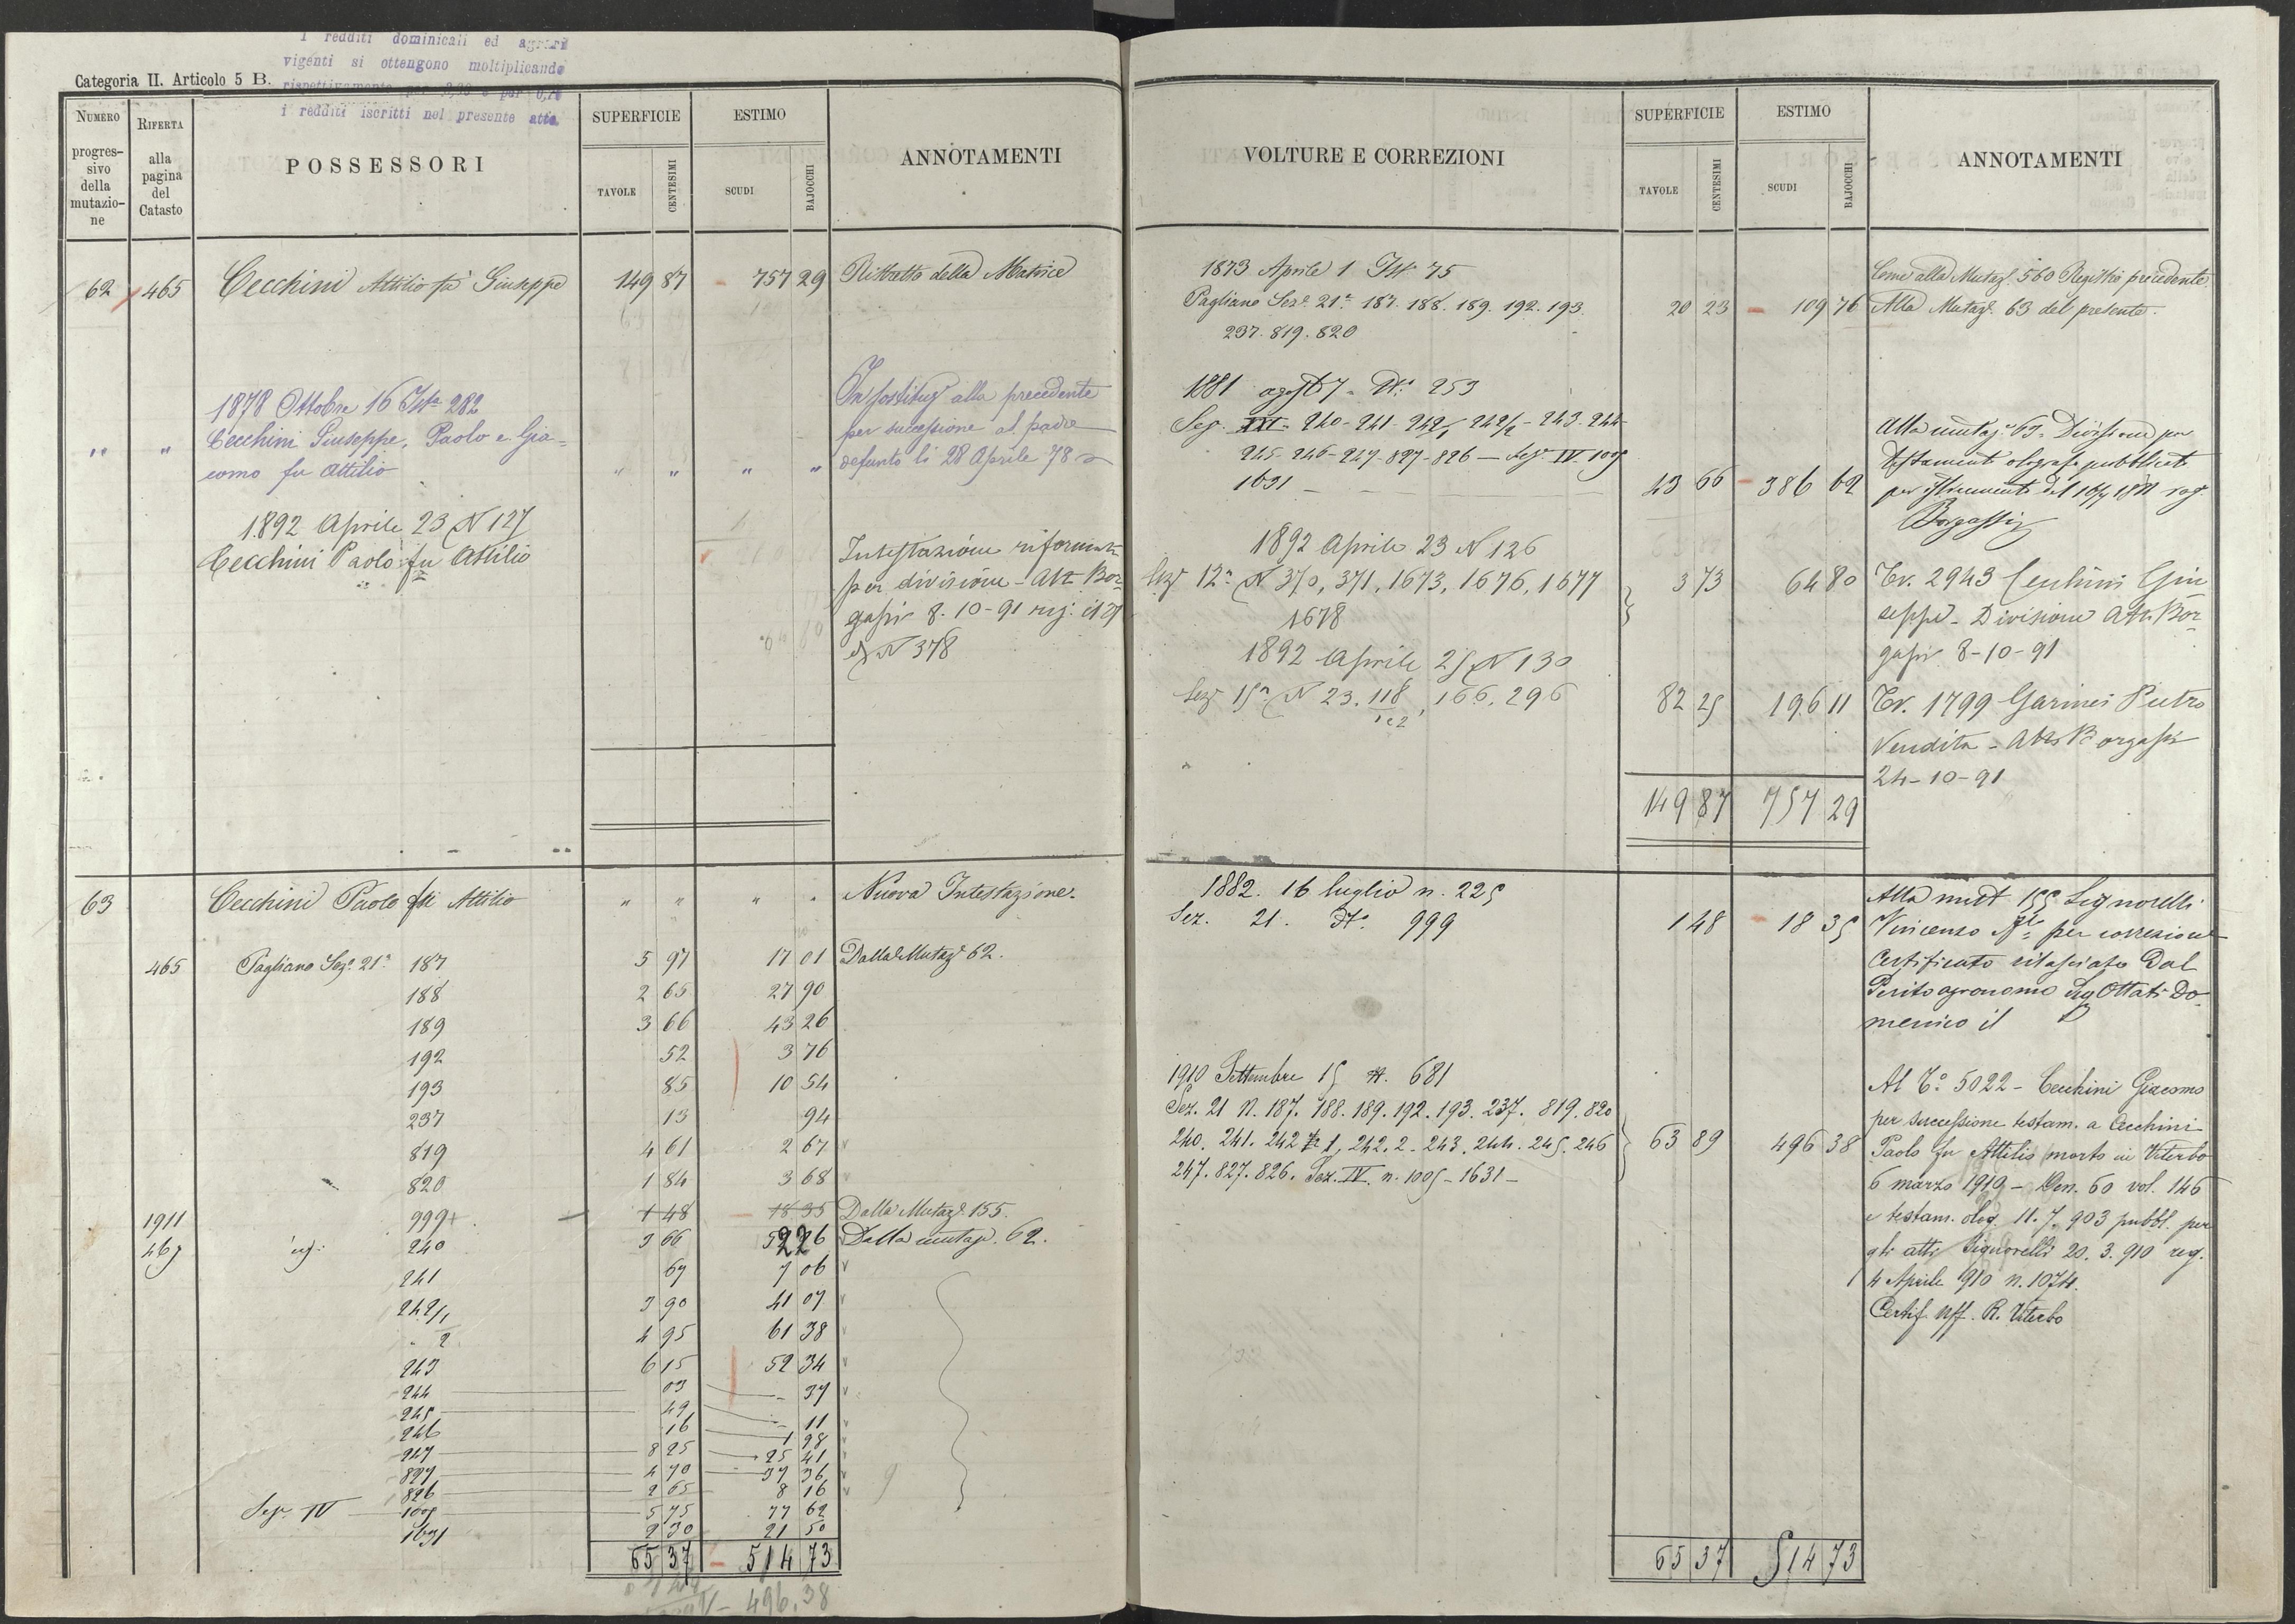 I redditi dominicali ed agrari
vigenti si ottengono moltiplicando
rispettivamente per
i redditi iscritti nel presente atto.
Categoria II. Articolo 5 B.
NUMERO progres-sivo della mutazio-ne
RIFERTA alla pagina del Catasto
POSSESSORI
SUPERFICIE
TAVOLE CENTESIMI
ESTIMO
SCUDI BAJOCCHI
ANNOTAMENTI
62 465 Cecchini Attilio fu Giuseppe 149 87 757 29 Ristretto della Matrice
1878 Ottobre 16 Ista 282
Cecchini Giuseppe, Paolo e Gia=
como fu Attilio
" " " " " "
alla precedente
per successione al padre
defunto li 28 Aprile 78
1892 Aprile 23 N 127
Cecchini Paolo fu Attilio
Intestazione riformata
per divisione - Att. Bor
gassi 8-10-91 reg.
N 378
63 Cecchini Paolo fu Attilio " " " " Nuova Intestazione.
465 Pagliano Sez. 21ª 187 5 97 17 01 Dalla Mutaz. 62.
188 2 65 27 90
189 3 66 43 26
192 52 3 76
193 85 10 54
237 13 94
819 4 61 2 67
820 1 84 3 68
1911 999 1 48 18 35 Dalla Mutaz. 155.
467 240 3 66 52 26 Dalla mutaz. 62.
241 69 7 06
242/1 3 90 41 07
2 4 95 61 38
243 6 15 52 34
244 03 - 37
245 49 - 11
246 16 1 98
247 8 25 25 41
827 4 70 37 36
826 2 65 8 16
Sez. IV 1005 5 75 77 62
1631 2 30 21 50
65 37 514 73
496.38
VOLTURE E CORREZIONI
SUPERFICIE
TAVOLE CENTESIMI
ESTIMO
SCUDI BAJOCCHI
ANNOTAMENTI
1873 Aprile 1 Ist. 75
Pagliano Sez. 21ª 187. 188. 189. 192. 193.
237. 819. 820
20 23 109 76
Come alla Mutaz. 560 Registro precedente
Alla Mutaz. 63 del presente.
1881 agosto 7 - Nº 253
Sez. XXI - 240 - 241 - 242/1 242/2 - 243. 244-
245 - 246 - 247 - 827 - 826 - Sez. IV - 1005
1631
43 66 386 62
Alla mutaz. 63 - Divisione per
testamento olografo pubblicato
per istrumento del
Borgassi
1892 Aprile 23 N 126
Sez. 12ª N 370, 371, 1673, 1676, 1677
1678
3 73 64 80
Tv. 2943 Cecchini Giu
seppe - Divisione Atti Bor
gassi 8-10-91
1892 Aprile 25 N 130
Sez. 15ª N 23. 118/1e2, 166. 296
82 25 196 11
Tv. 1799 Garinei Pietro
Vendita - Atto Borgassi
24-10-91
149 87 757 29
1882. 16 luglio n. 225
Sez. 21. Nº 999
1 48 18 35
Alla mut 155 Signorelli
Vincenzo per correzione
Certificato rilasciato dal
Perito agronomo Sig Ottati Do-
menico il
1910 Settembre 15 N. 681
Sez. 21 N. 187. 188. 189. 192. 193. 237. 819. 820
240. 241. 242 1, 242. 2. 243. 244. 245. 246
247. 827. 826. Sez. IV. n. 1005 - 1631 -
63 89 496 38
Al Tº 5022 - Cecchini Giacomo
per successione testam. a Cecchini
Paolo fu Attilio morto in Viterbo
6 marzo 1910 - Den. 60 vol. 146
e testam. olog. 11. 7. 903 pubbl. per
gli atti Signorelli 20. 3. 910 reg.
4 Aprile 910 n. 1074.
Certif. Uff. R. Viterbo
65 37 514 73